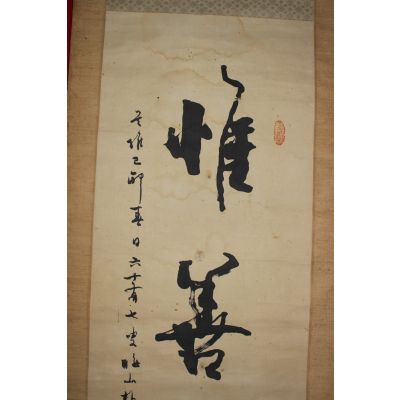 惟善
維己卯春日六十有七叟山